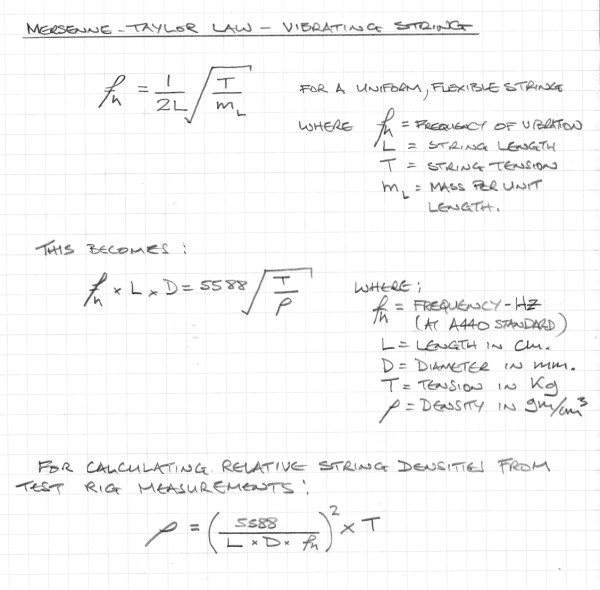 MERSENNE-TAYLOR LAW - VIBRATING STRING
fn = 1/2L √(T/mL)
FOR A UNIFORM, FLEXIBLE STRING
WHERE fn = FREQUENCY OF VIBRATION
L = STRING LENGTH
T = STRING TENSION
mL = MASS PER UNIT
LENGTH.
THIS BECOMES:
fn × L × D = 5588 √(T/ρ)
WHERE;
fn = FREQUENCY - HZ
(AT A440 STANDARD)
L = LENGTH IN cm.
D = DIAMETER IN mm.
T = TENSION IN Kg
ρ = DENSITY IN gm/cm³
FOR CALCULATING RELATIVE STRING DENSITIES FROM
TEST RIG MEASUREMENTS:
ρ = (5588 / L × D × fn)² × T